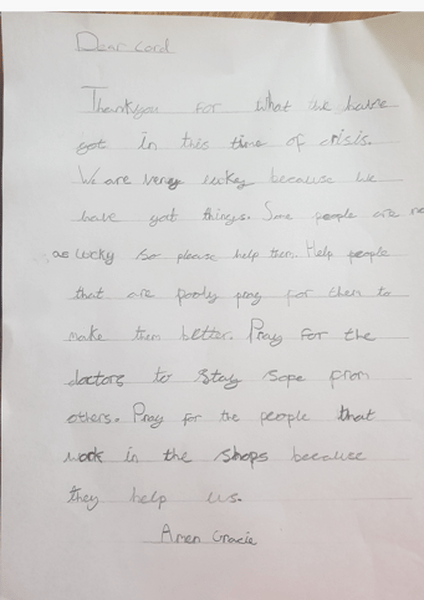 Dear Lord
Thankyou for what we have
got in this time of crisis.
We are very lukey because we
have got things. Some people are no
as lucky so please help them. Help people
that are poorly pray for them to
make them better. Pray for the
doctors to stay safe from
others. Pray for the people that
work in the shops because
they help us.
Amen Gracie